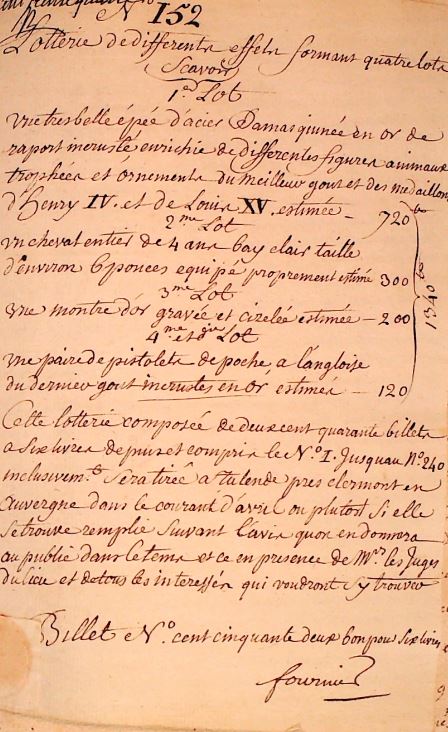 N.º 152
Lotterie de differents effets formant quatre lots
Scavoir
1.er Lot
une tres belle épée d'acier Damasquinée en or de
raport incrusté enrichie de differentes figures animaux
trophées et ornements du meilleur gout et des medaillons
d'Henry IV. et de Louis XV. estimée — 720 lt
2.me Lot
un cheval entier de 4 ans bay clair taille
d'environ 6 pouces equipé proprement estimé 300 lt
3.me Lot
une montre d'or gravée et cizelée estimée — 200
4.me et Lot
une paire de pistolets de poche, a langloise
du dernier gout incrustés en or estimés — 120
1340 lt
Cette lotterie composée de deux cent quarante billets
a six livres depuis et compris le N.º I. Jusquau N.º 240
inclusivem.t Sera tirée a tulende pres clermont en
Auvergne dans le courant d'avril ou plutost si elle
se trouve remplie suivant l'avis quon en donnera
au public dans le tems et ce en presence de M.rs les Juges
du lieu et de tous les interessés qui voudront s'y trouver
Billet N.º cent cinquante deux bon pour six livres
fournier